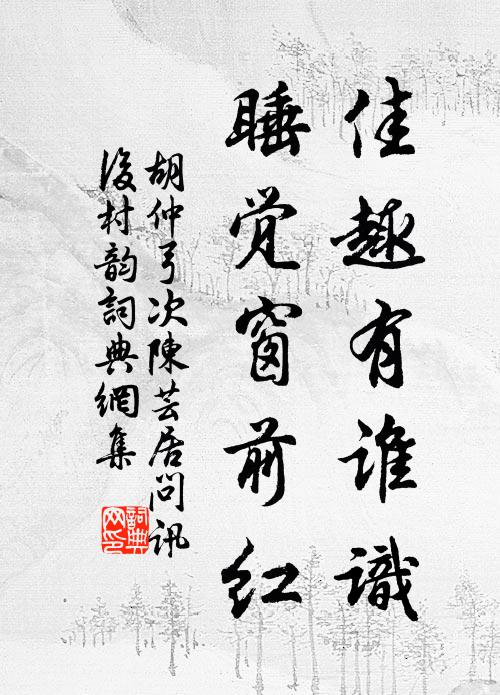 佳趣有谁識
睡觉窗前红
胡仲弓次陳芸居問訊
後村韵詞典網集
詞典网